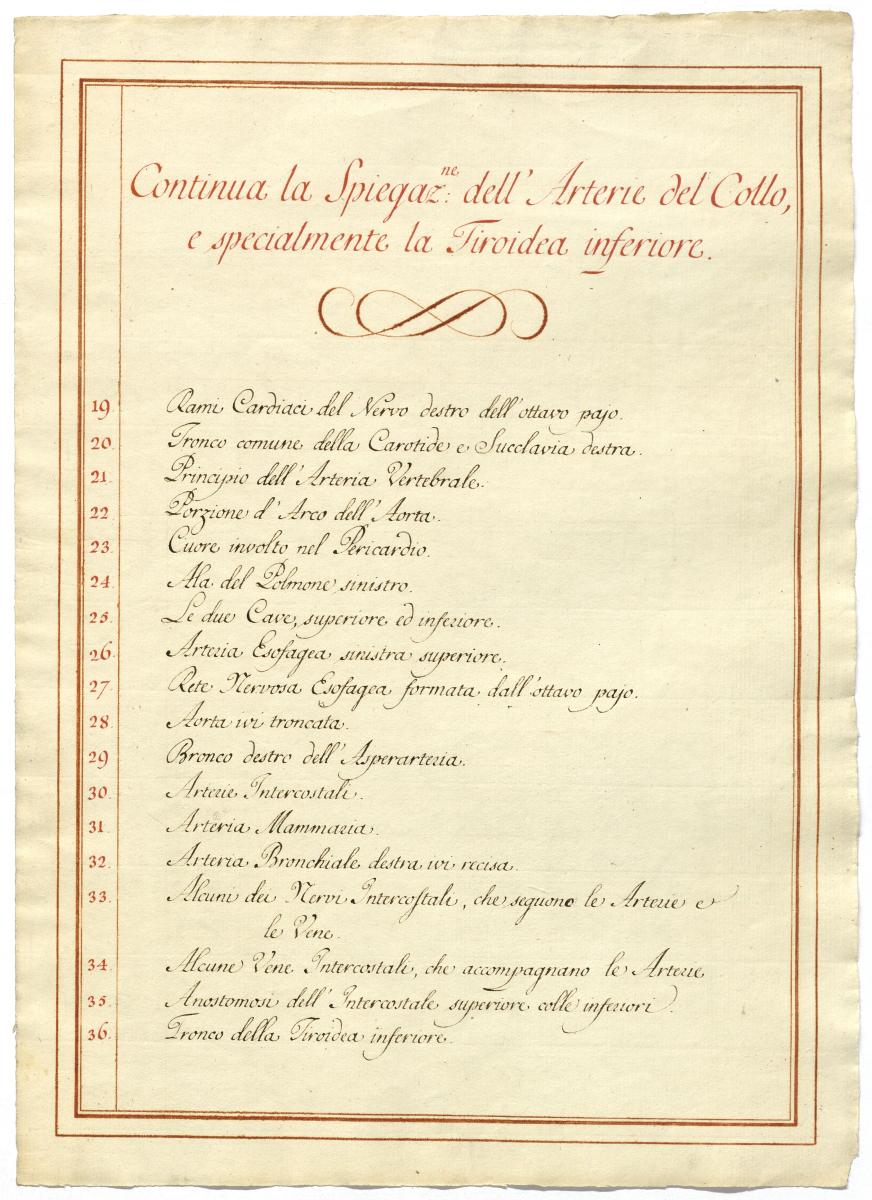 Continua la Spiegaz.ne: dell'Arterie del Collo,
e specialmente la Tiroidea inferiore.
19. Rami Cardiaci del Nervo destro dell'ottavo pajo.
20. Tronco comune della Carotide e Succlavia destra.
21. Principio dell'Arteria Vertebrale.
22. Porzione d'Arco dell'Aorta.
23. Cuore involto nel Pericardio.
24. Ala del Polmone sinistro.
25. Le due Cave, superiore ed inferiore.
26. Arteria Esofagea sinistra superiore.
27. Rete Nervosa Esofagea formata dall'ottavo pajo.
28. Aorta ivi troncata.
29. Bronco destro dell'Asperarteria.
30. Arterie Intercostali.
31. Arteria Mammaria.
32. Arteria Bronchiale destra ivi recisa.
33. Alcuni dei Nervi Intercoſtali, che seguono le Arterie e
le Vene.
34. Alcune Vene Intercostali, che accompagnano le Arterie
35. Anostomosi dell'Intercostale superiore colle inferiori.
36. Tronco della Tiroidea inferiore.